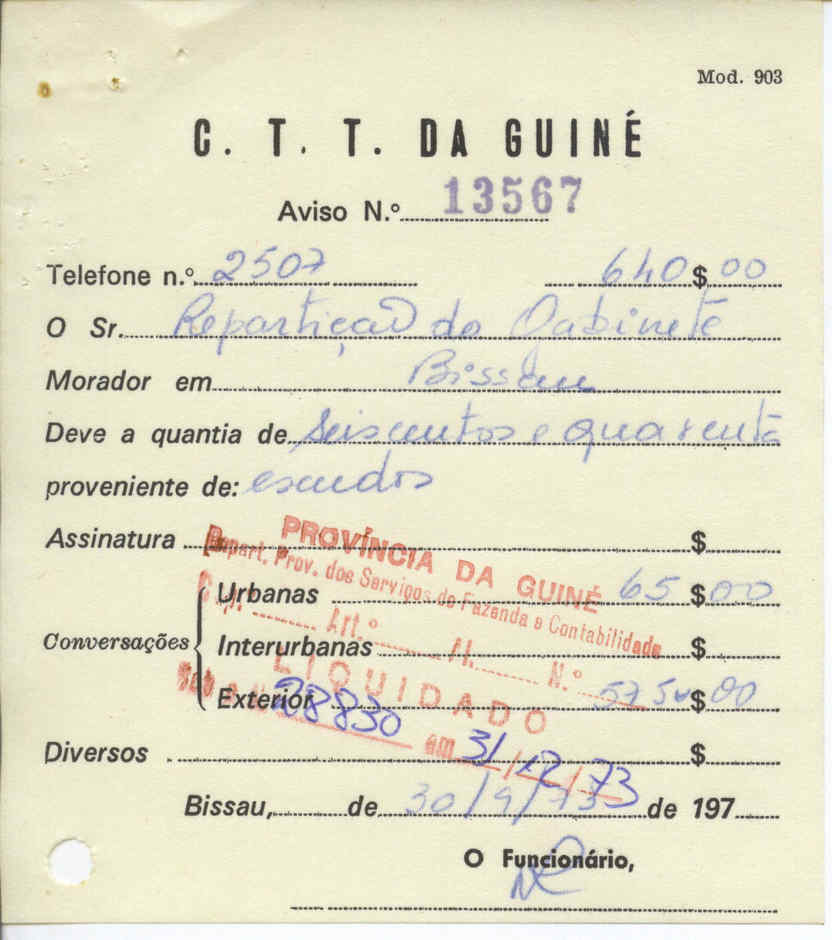 Mod. 903
C. T. T. DA GUINÉ
Aviso N.º 13567
Telefone n.º 2507 640$00
O Sr. Repartição do Gabinete
Morador em Bissau
Deve a quantia de Seiscentos e quarenta
proveniente de: escudos
Assinatura $
PROVÍNCIA DA GUINÉ
Repart. Prov. dos Serviços de Fazenda e Contabilidade
Conversações
Urbanas 65$00
Cap. Art.º N.º
Interurbanas $
LIQUIDADO
Exterior 575$00
28830 em 31/12/73
Diversos $
Bissau, de 30/9/73 de 197
O Funcionário,